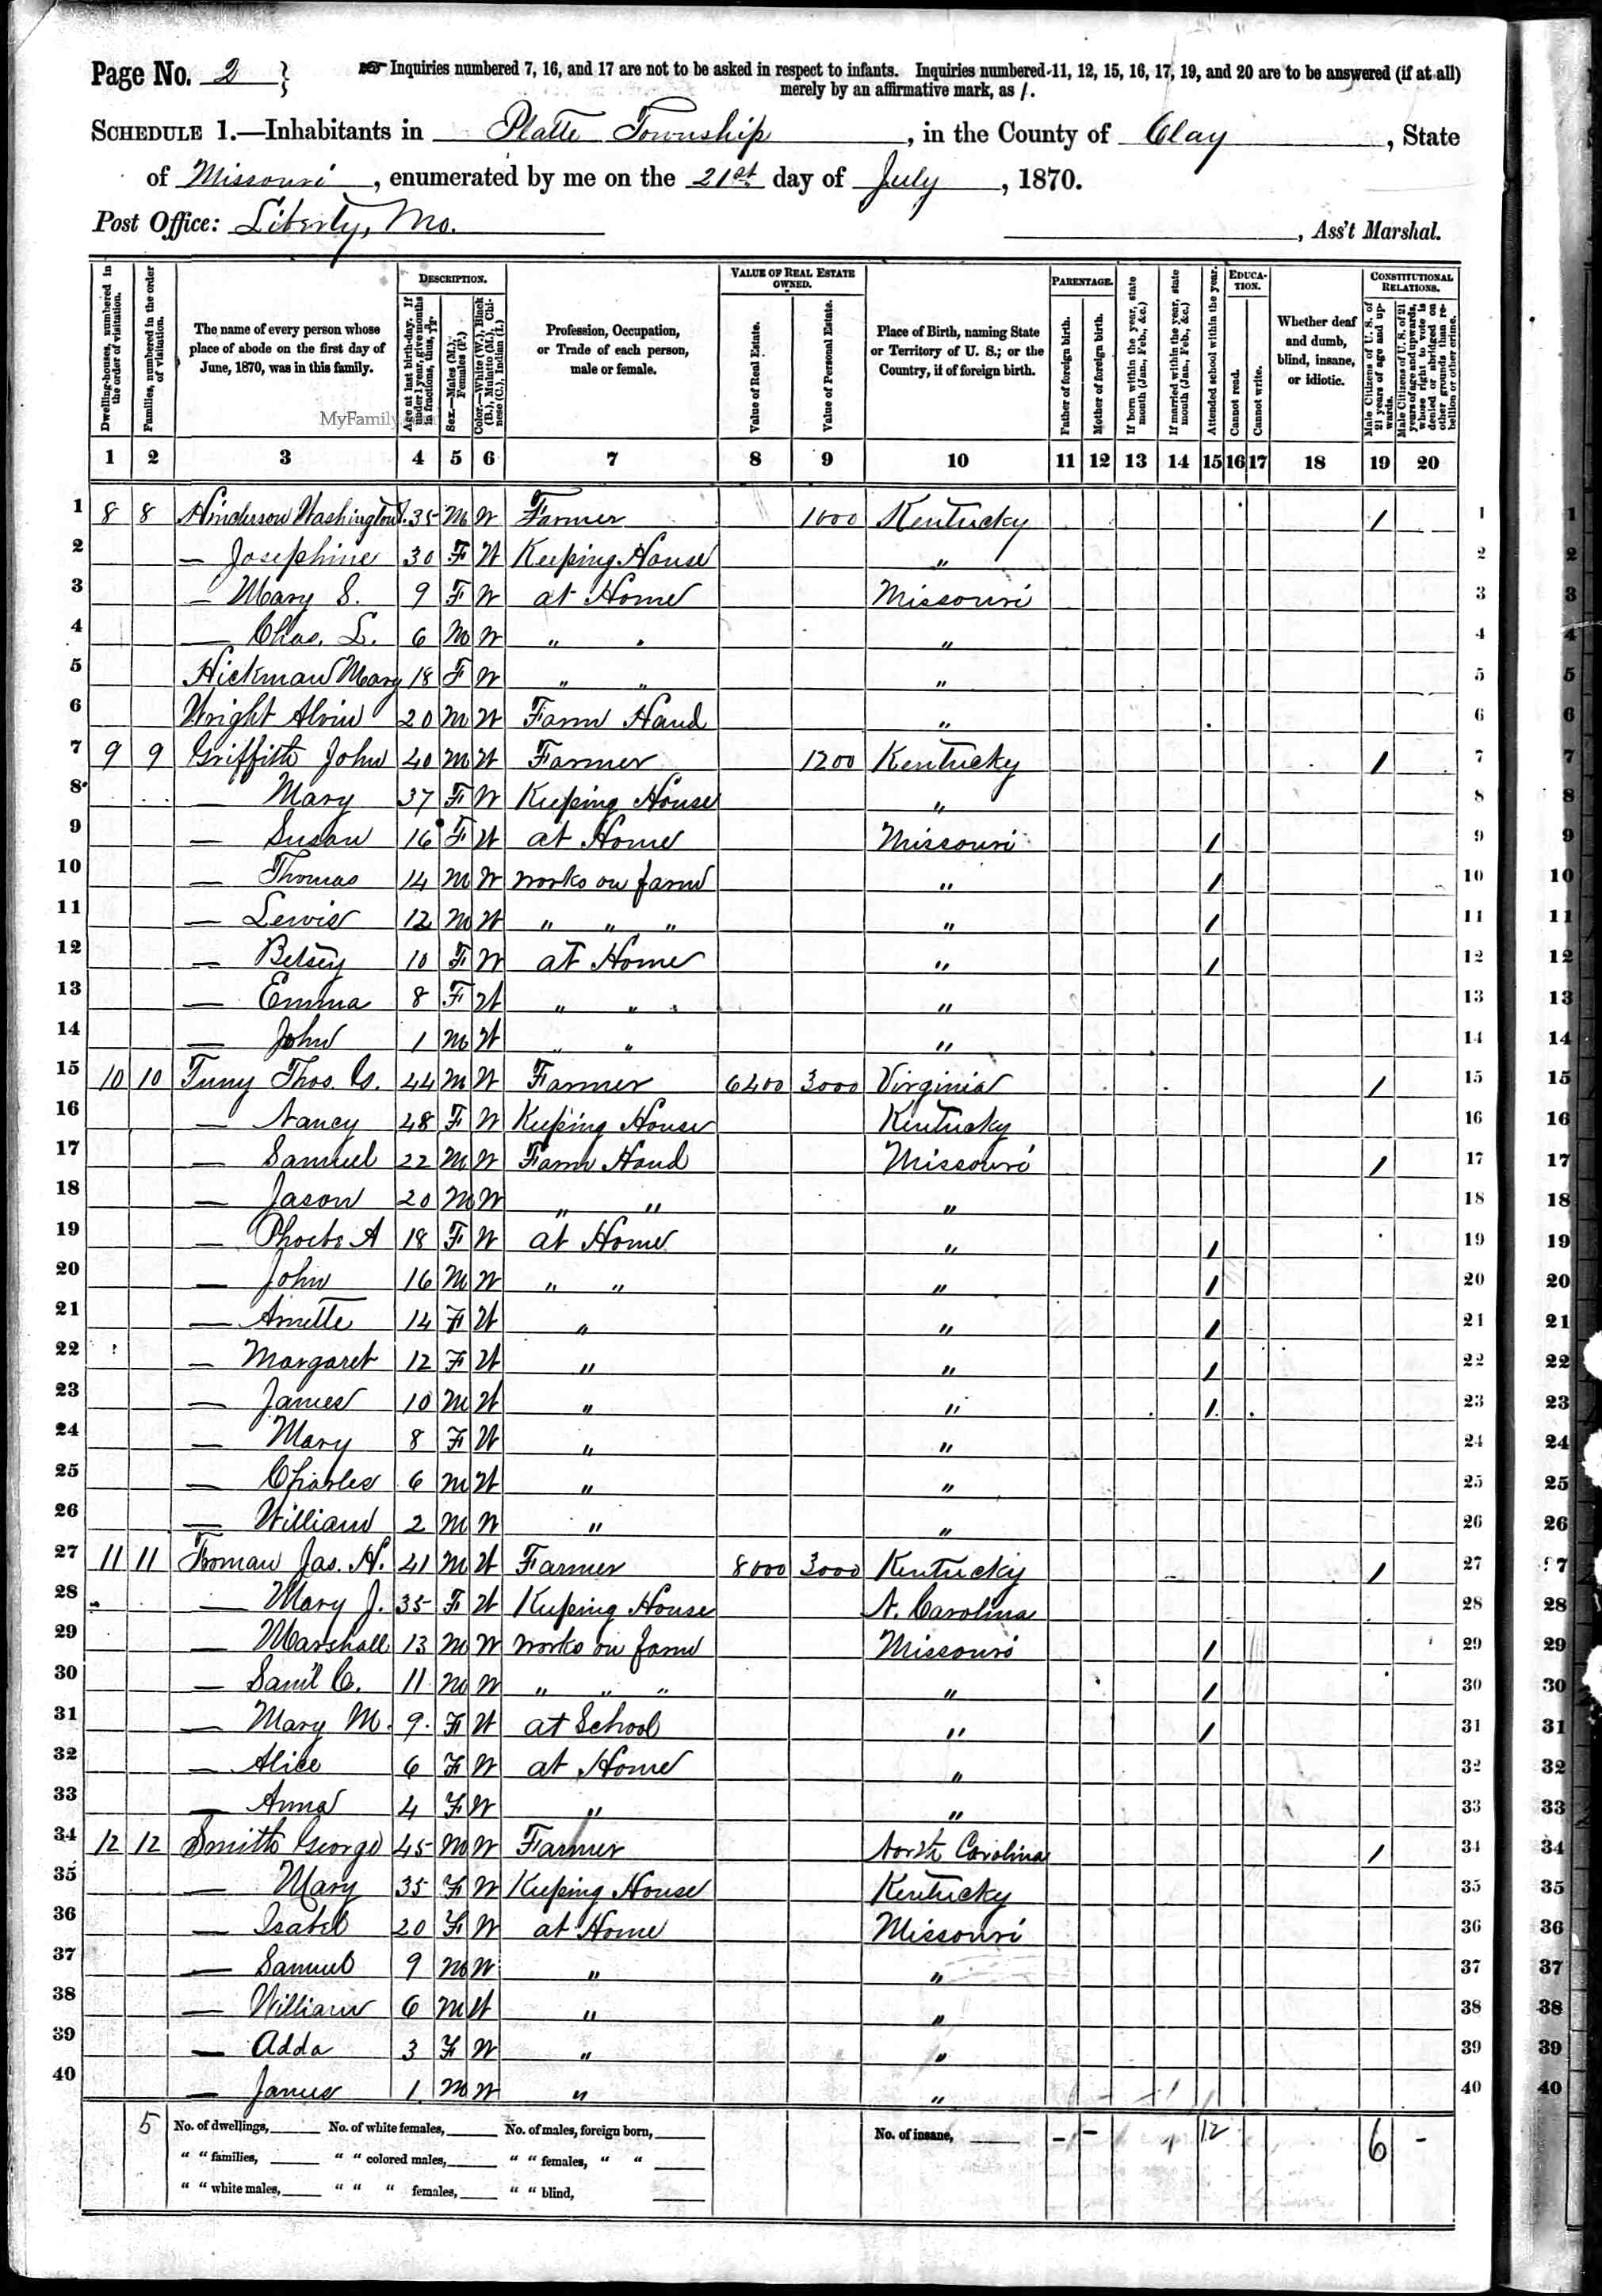 Page No. 2 } Inquiries numbered 7, 16, and 17 are not to be asked in respect to infants. Inquiries numbered 11, 12, 15, 16, 17, 19, and 20 are to be answered (if at all)
merely by an affirmative mark, as /.
SCHEDULE 1.—Inhabitants in Platte Township, in the County of Clay, State
of Missouri, enumerated by me on the 21st day of July, 1870.
Post Office: Liberty, Mo. , Ass't Marshal.
Dwelling-houses, numbered in the order of visitation.
Families, numbered in the order of visitation.
The name of every person whose place of abode on the first day of June, 1870, was in this family.
MyFamily
DESCRIPTION.
Age at last birth-day. If under 1 year, give months in fractions, thus,
Sex.—Males (M.), Females (F.)
Color.—White (W.), Black (B.), Mulatto (M.), Chinese (C.), Indian (I.)
Profession, Occupation, or Trade of each person, male or female.
VALUE OF REAL ESTATE OWNED.
Value of Real Estate.
Value of Personal Estate.
Place of Birth, naming State or Territory of U. S.; or the Country, if of foreign birth.
PARENTAGE.
Father of foreign birth.
Mother of foreign birth.
If born within the year, state month (Jan., Feb., &c.)
If married within the year, state month (Jan., Feb., &c.)
Attended school within the year.
EDUCATION.
Cannot read.
Cannot write.
Whether deaf and dumb, blind, insane, or idiotic.
CONSTITUTIONAL RELATIONS.
Male Citizens of U. S. of 21 years of age and upwards.
Male Citizens of U. S. of 21 years of age and upwards, whose right to vote is denied or abridged on other grounds than rebellion or other crime.
1 2 3 4 5 6 7 8 9 10 11 12 13 14 15 16 17 18 19 20
1 8 8 Hinderson Washington 35 M W Farmer 1000 Kentucky / 1 1
2 — Josephine 30 F W Keeping House " 2 2
3 — Mary S. 9 F W at Home Missouri 3 3
4 — Chas. L. 6 M W " " " 4 4
5 Hickman Mary 18 F W " " " 5 5
6 Wright Alvin 20 M W Farm Hand " 6 6
7 9 9 Griffith John 40 M W Farmer 1200 Kentucky / 7 7
8 — Mary 37 F W Keeping House " 8 8
9 — Susan 16 F W at Home Missouri / 9 9
10 — Thomas 14 M W works on farm " / 10 10
11 — Lewis 12 M W " " " " / 11 11
12 — Betsey 10 F W at Home " / 12 12
13 — Emma 8 F W " " " 13 13
14 — John 1 M W " " " 14 14
15 10 10 Thos. 44 M W Farmer 6400 3000 Virginia / 15 15
16 — Nancy 48 F W Keeping House Kentucky 16 16
17 — Samuel 22 M W Farm Hand Missouri / 17 17
18 — Jason 20 M W " " " 18 18
19 — Phoebe A 18 F W at Home " / 19 19
20 — John 16 M W " " " / 20 20
21 — Amette 14 F W " " / 21 21
22 — Margaret 12 F W " " / 22 22
23 — James 10 M W " " / 23 23
24 — Mary 8 F W " " 24 24
25 — Charles 6 M W " " 25 25
26 — William 2 M W " " 26 26
27 11 11 Froman Jas. H. 41 M W Farmer 8000 3000 Kentucky / 27 27
28 — Mary J. 35 F W Keeping House N. Carolina 28 28
29 — Marshall 13 M W works on farm Missouri / 29 29
30 — Sam'l C. 11 M W " " " " / 30 30
31 — Mary M. 9 F W at School " / 31 31
32 — Alice 6 F W at Home " 32 32
33 — Anna 4 F W " " 33 33
34 12 12 Smith George 45 M W Farmer North Carolina / 34 34
35 — Mary 35 F W Keeping House Kentucky 35 35
36 — Isabel 20 F W at Home Missouri 36 36
37 — Samuel 9 M W " " 37 37
38 — William 6 M W " " 38 38
39 — Adda 3 F W " " 39 39
40 — James 1 M W " " 40 40
5 No. of dwellings, No. of white females, No. of males, foreign born, No. of insane, – – 12 6 –
" " families, " " colored males, " " females, " "
" " white males, " " " females, " " blind,